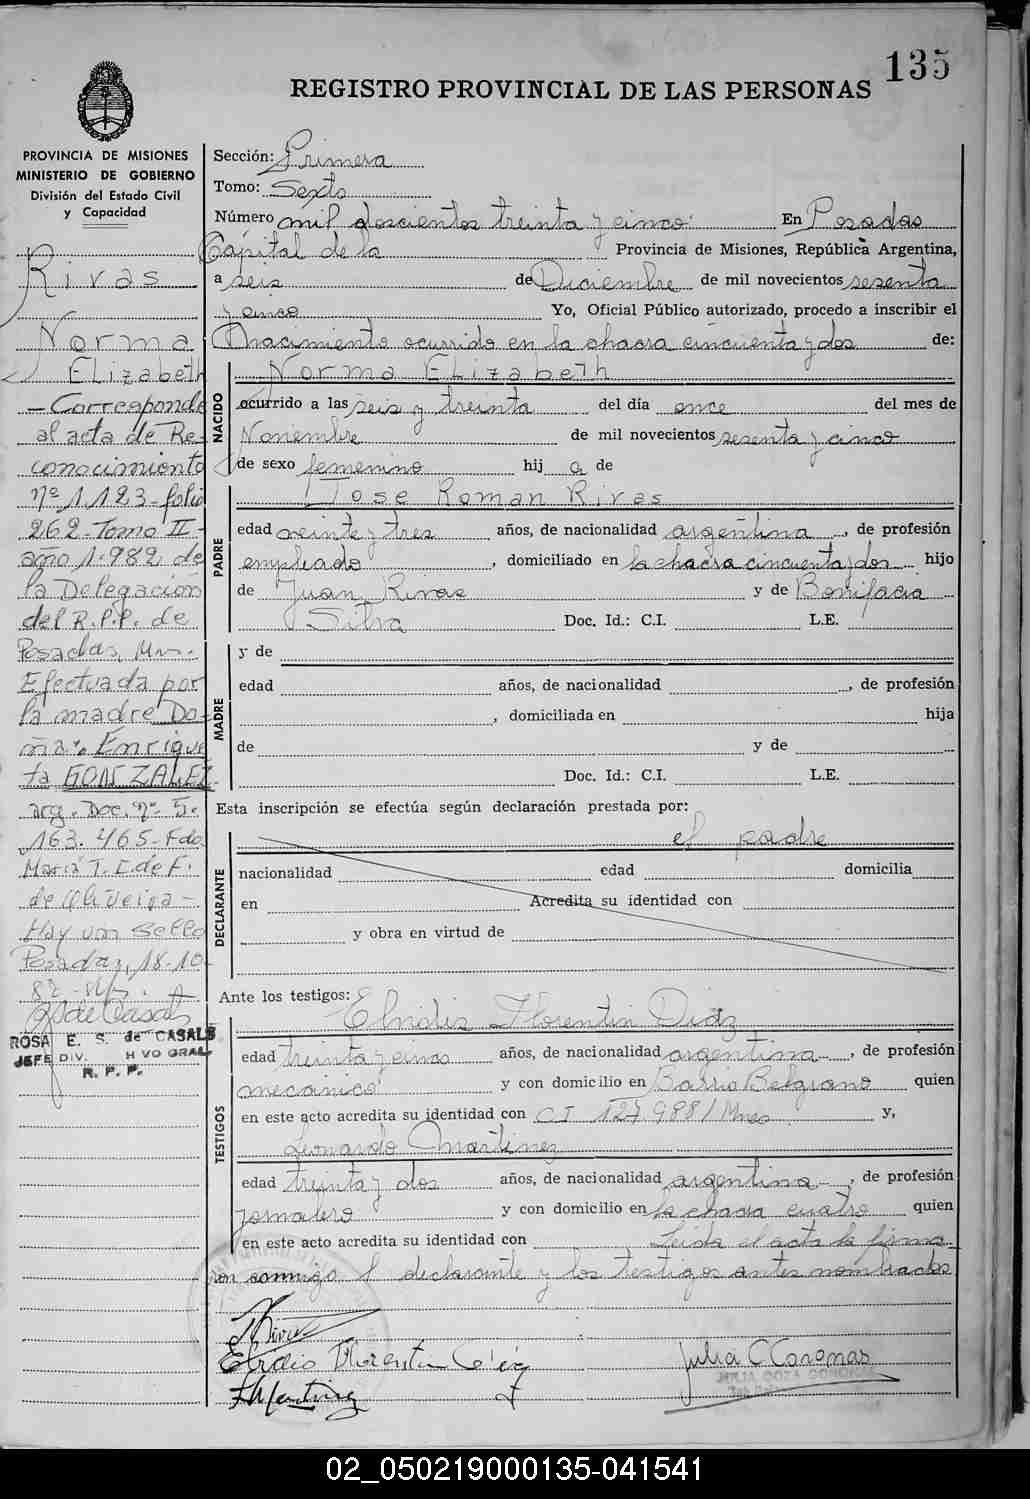 135
REGISTRO PROVINCIAL DE LAS PERSONAS
PROVINCIA DE MISIONES
MINISTERIO DE GOBIERNO
División del Estado Civil
y Capacidad
Rivas
Norma
Elizabeth
- Corresponde
al acta de Re-
conocimiento
nº 1.123 - folio
262 - Tomo II -
año 1.982 de
la Delegación
del R.P.P. de
Posadas, Mns.
Efectuada por
la madre Do-
ña: Enrique
ta GONZALEZ
arg. Doc. nº 5.
163.465 - Fdo.
María T. C. de F.
de Oliveira -
Hay un sello
Posadas, 18-10-
82 -
ROSA E. S. de CASALS
JEFE DIV. H VO GRAL
R. P. P.
Sección: Primera
Tomo: Sexto
Número mil doscientos treinta y cinco En Posadas
Capital de la Provincia de Misiones, República Argentina,
a seis de Diciembre de mil novecientos sesenta
y cinco Yo, Oficial Público autorizado, procedo a inscribir el
Nacimiento ocurrido en la chacra cincuenta y dos de:
NACIDO
Norma Elizabeth
ocurrido a las seis y treinta del día once del mes de
Noviembre de mil novecientos sesenta y cinco
de sexo femenino hij a de
PADRE
Jose Roman Rivas
edad veinte y tres años, de nacionalidad argentina, de profesión
empleado, domiciliado en la chacra cincuenta y dos hijo
de Juan Rivas y de Bonifacia
Silva Doc. Id.: C.I. L.E.
MADRE
y de
edad años, de nacionalidad, de profesión
, domiciliada en hija
de y de
Doc. Id.: C.I. L.E.
Esta inscripción se efectúa según declaración prestada por:
DECLARANTE
el padre
nacionalidad edad domicilia
en Acredita su identidad con
y obra en virtud de
Ante los testigos:
TESTIGOS
Elpidio Florentin Diaz
edad treinta y cinco años, de nacionalidad argentina, de profesión
mecanico y con domicilio en Barrio Belgrano quien
en este acto acredita su identidad con CI 127.988/Mnes y,
Leonardo Martinez
edad treinta y dos años, de nacionalidad argentina, de profesión
jornalero y con domicilio en la chacra cuatro quien
en este acto acredita su identidad con Leida el acta la firma
ron conmigo el declarante y los testigos antes nombrados
Julia C Coronas
02_050219000135-041541